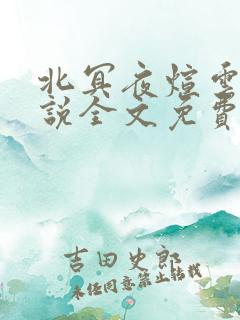 北冥夜煊雲
說全文免費
吉田史郎
未经同意禁止转载